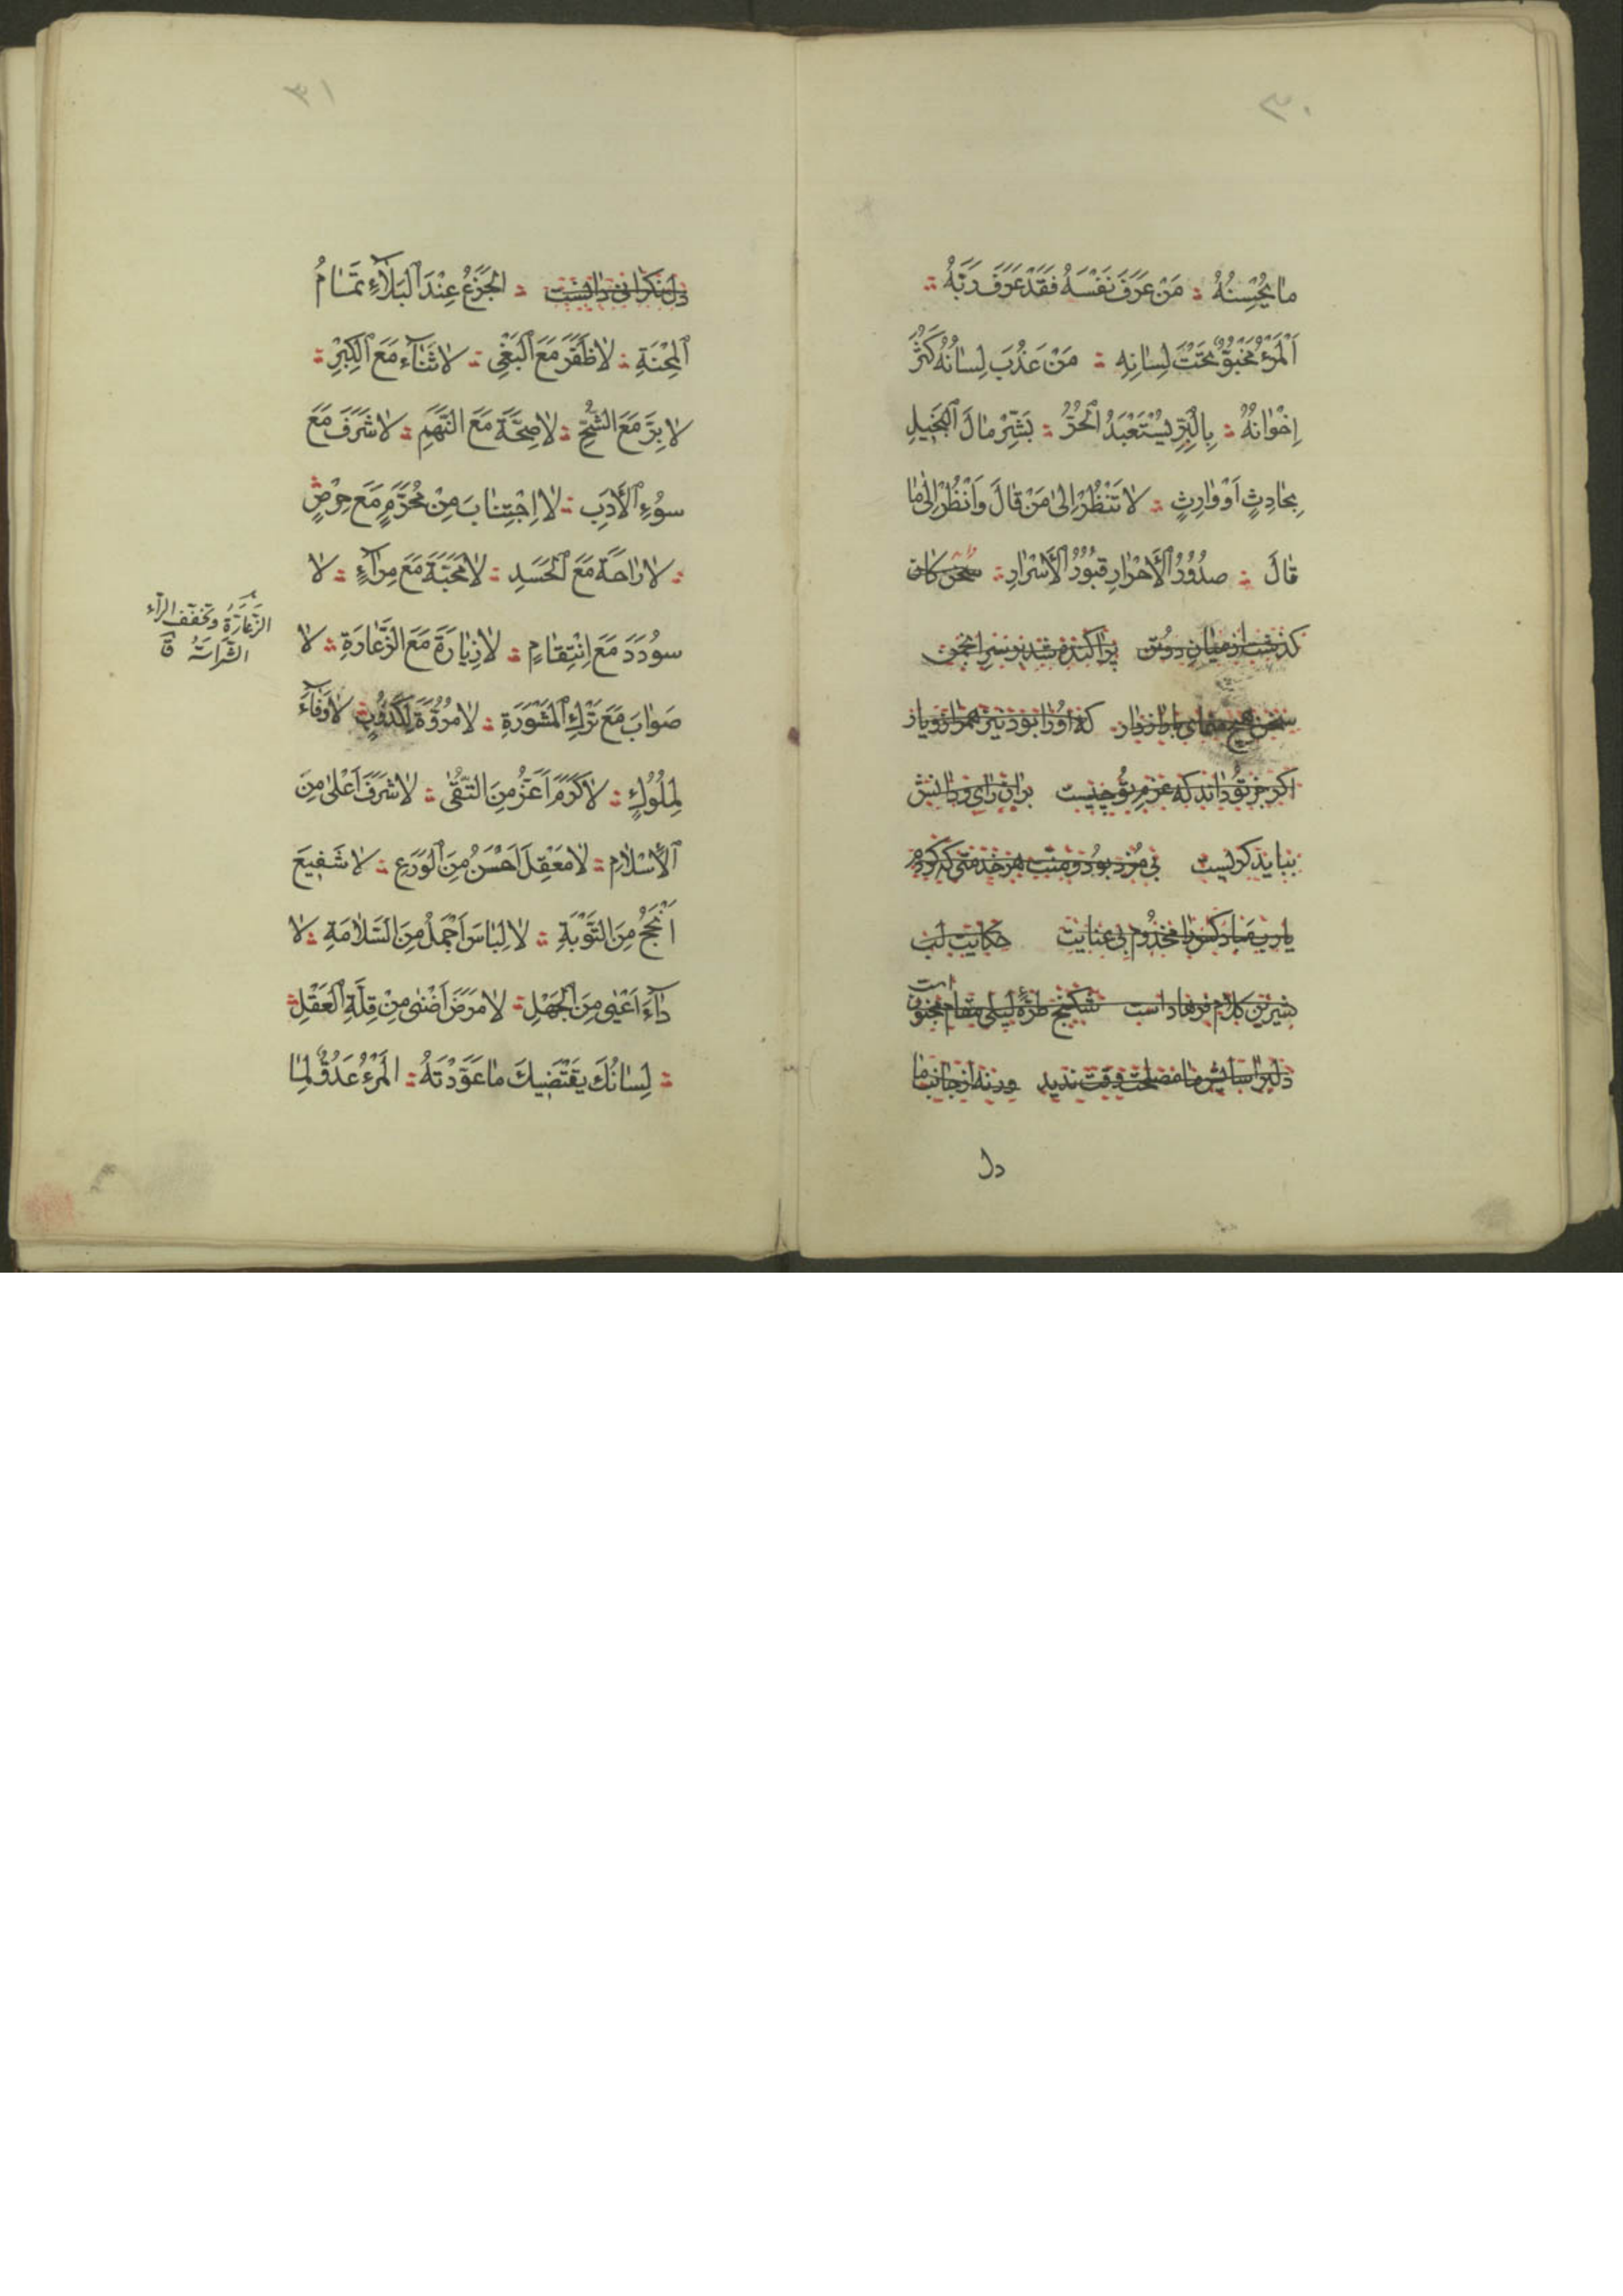 ٣٠
مٰا يُحْسِنُهُ ؞ مَنْ عَرَفَ نَفْسَهُ فَقَدْ عَرَفَ رَبَّهُ ؞
اَلْمَرْءُ مَخْبُوٌّ تَحْتَ لِسٰانِهِ ؞ مَنْ عَذُبَ لِسٰانُهُ كَثُرَ
اِخْوٰانُهُ ؞ بِالْبِرِّ يُسْتَعْبَدُ الْحُرُّ ؞ بَشِّرْ مٰالَ الْبَخِيلِ
بِحٰادِثٍ اَوْ وٰارِثٍ ؞ لاٰ تَنْظُرْ اِلىٰ مَنْ قٰالَ وَانْظُرْ اِلىٰ مٰا
قٰالَ ؞ صُدُورُ الْأَحْرٰارِ قُبُورُ الْأَسْرٰارِ ؞ سخن كان
كذشت از ميان دو تن پراكنده شد بر سر انجمن
سخن هيچ مسراى با رازدار كه او را بود نيز همراز و يار
اكر جز تو داند كه عزم تو چيست بر آن راى و دانش
ببايد كريست بى مزد بود و منت هر خدمتى كه كردم
يا رب مباد كس را مخدوم بى عنايت حكايت لب
شيرين كلام فرهاد است شكنج طره ليلى مقام مجنون است
دلبر آسايش ما مصلحت وقت نديد ورنه از جانب ما
دل
٣١
دل نكرانى دانست ؞ الْجَزَعُ عِنْدَ الْبَلاٰءِ تَمٰامُ
الْمِحْنَةِ ؞ لاٰ ظَفَرَ مَعَ الْبَغْىِ ؞ لاٰ ثَنٰاءَ مَعَ الْكِبْرِ ؞
لاٰ بِرَّ مَعَ الشُّحِّ ؞ لاٰ صِحَّةَ مَعَ النَّهَمِ ؞ لاٰ شَرَفَ مَعَ
سُوءِ الْأَدَبِ ؞ لاٰ اِجْتِنٰابَ مِنْ مُحَرَّمٍ مَعَ حِرْصٍ
؞ لاٰ رٰاحَةَ مَعَ الْحَسَدِ ؞ لاٰ مَحَبَّةَ مَعَ مِرٰاءٍ ؞ لاٰ
سُودَدَ مَعَ اِنْتِقٰامٍ ؞ لاٰ زِيٰارَةَ مَعَ الزَّعٰارَةِ ؞ لاٰ
صَوٰابَ مَعَ تَرْكِ الْمَشْوَرَةِ ؞ لاٰ مُرُوَّةَ لِكَذُوبٍ لاٰ وَفٰاءَ
لِمُلُوكٍ ؞ لاٰ كَرَمَ اَعَزُّ مِنَ التُّقىٰ ؞ لاٰ شَرَفَ اَعْلىٰ مِنَ
الْاِسْلاٰمِ ؞ لاٰ مَعْقِلَ اَحْسَنُ مِنَ الْوَرَعِ ؞ لاٰ شَفِيعَ
اَنْجَحُ مِنَ التَّوْبَةِ ؞ لاٰ لِبٰاسَ اَجْمَلُ مِنَ السَّلاٰمَةِ ؞ لاٰ
دٰاءَ اَعْيىٰ مِنَ الْجَهْلِ ؞ لاٰ مَرَضَ اَضْنىٰ مِنْ قِلَّةِ الْعَقْلِ ؞
؞ لِسٰانُكَ يَقْتَضِيكَ مٰا عَوَّدْتَهُ ؞ الْمَرْءُ عَدُوٌّ لِمٰا
الزَّعَارَّةُ وتخفف الرآء
الشَّرَاسَةُ ق